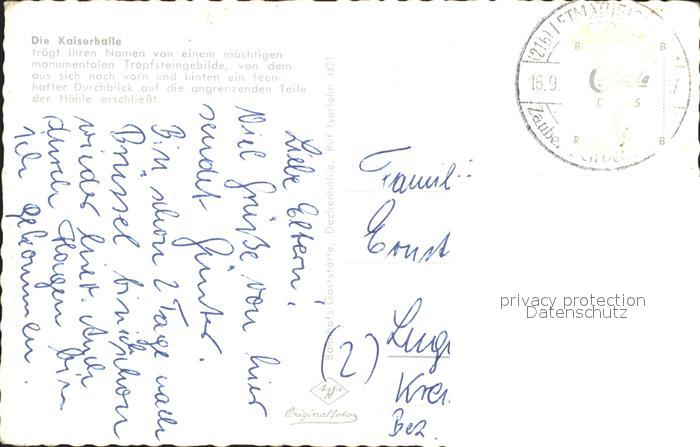 Die Kaiserhalle
trägt ihren Namen von einem mächtigen
monumentalen Tropfsteingebilde, von dem
aus sich nach vorn und hinten ein feen-
hafter Durchblick auf die angrenzenden Teile
der Höhle erschließt.
Liebe Eltern!
Viel Grüße von hier
sendet Günter.
Bin schon 2 Tage nach
Brüssel bin schon
wieder hier. Auch
durch Hagen bin
ich gekommen.
Bahnhofs-Gaststätte, Dechenhöhle, Ruf Iserlohn 4421
Agfa
Originalfoto
(21b) LETMATHE
16.9.
Zauber
Famil
Ernst
(2) Lug
Krei
Bez.
privacy protection
Datenschutz